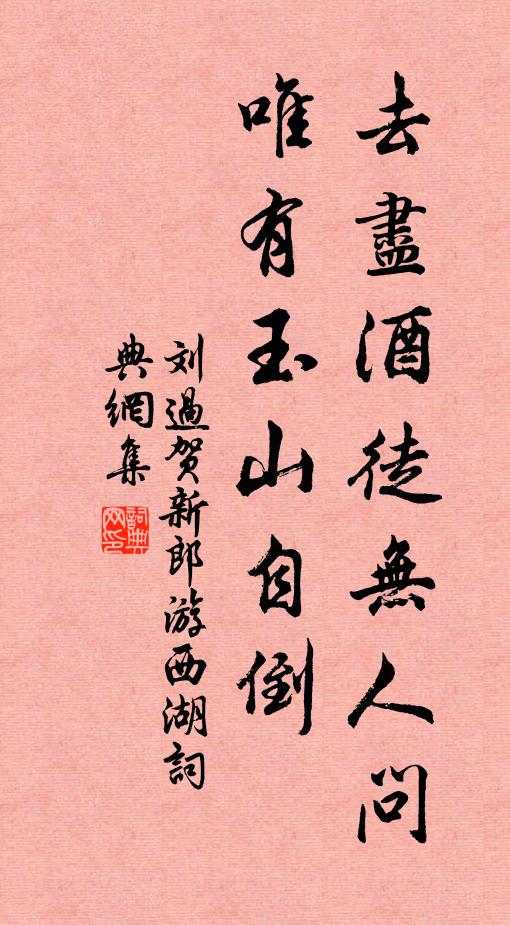 去盡酒徒無人問
唯有玉山自倒
刘過贺新郎游西湖詞
典網集
詞典網印